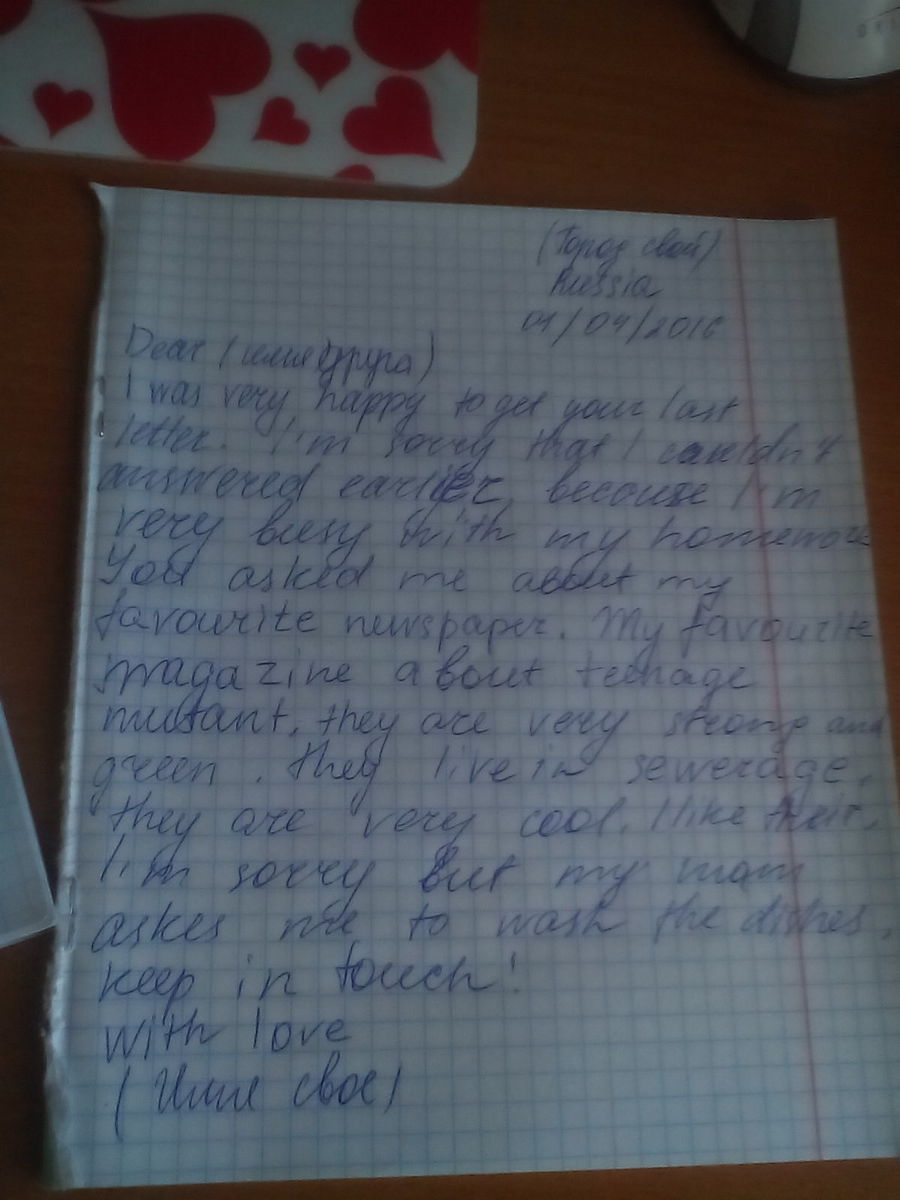 (Город свой)
Russia
01/04/2016
Dear (имя друга)
I was very happy to get your last
letter. I'm sorry that I couldn't
answered earlier, because I'm
very busy with my homework
You asked me about my
favourite newspaper. My favourite
magazine about teenage
mutant, they are very strong and
green. they live in sewerage.
they are very cool. I like their.
I'm sorry but my mom
askes me to wash the dishes.
keep in touch!
with love
(Имя свое)